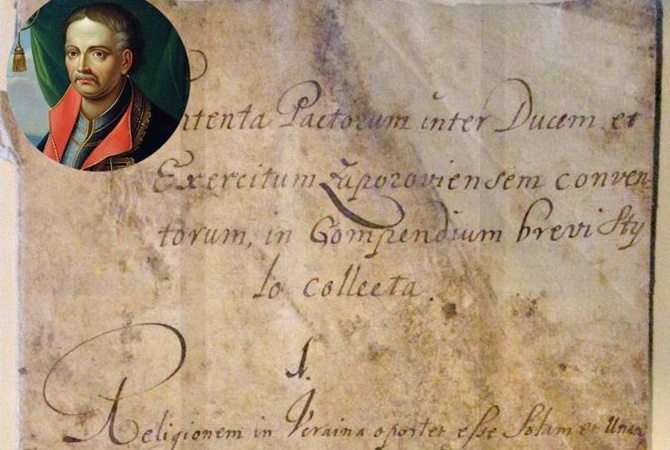 ntenta Pactorum inter Ducem et
Exercitum Zaporoviensem conven
torum, in Compendium brevi Sty
lo collecta.
1.
Religionem in Vcraina oportet esse Solam et Unam